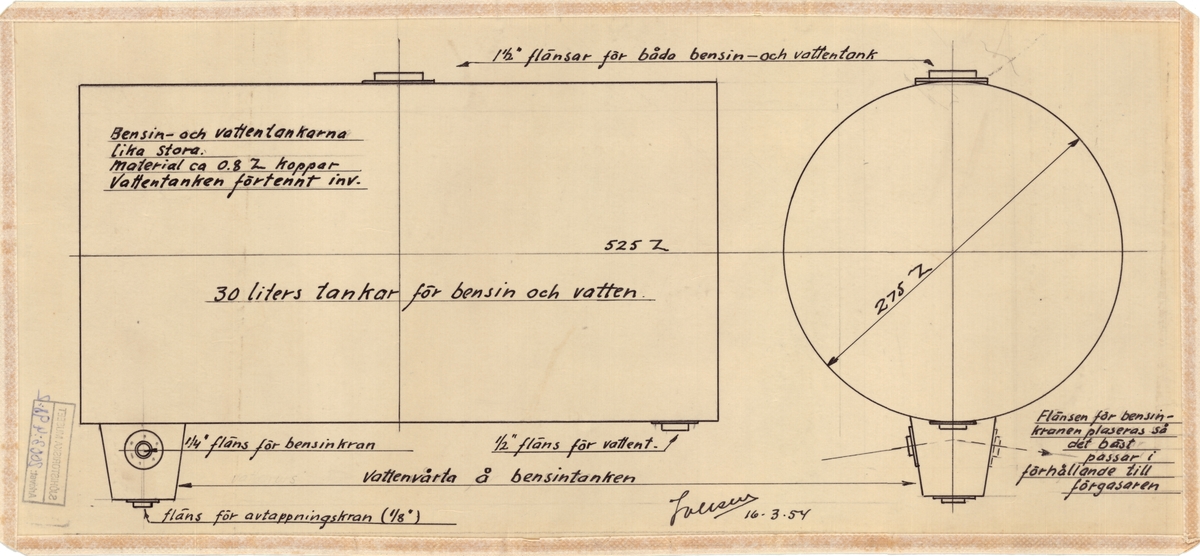 1½" flänsar för båda bensin-och vattentank
Bensin-och vattentankarna
lika stora.
Material ca 0.8 Z koppar
Vattentanken förtennt inv.
525 Z
30 liters tankar för bensin och vatten.
275 Z
1/4" fläns för bensinkran
1/2" fläns för vattent.
Vattenvårta å bensintanken
fläns för avtappningskran (1/8")
16-3-54
Flänsen för bensin-
kranen plaseras så
det bäst
passar i
förhållande till
förgasaren